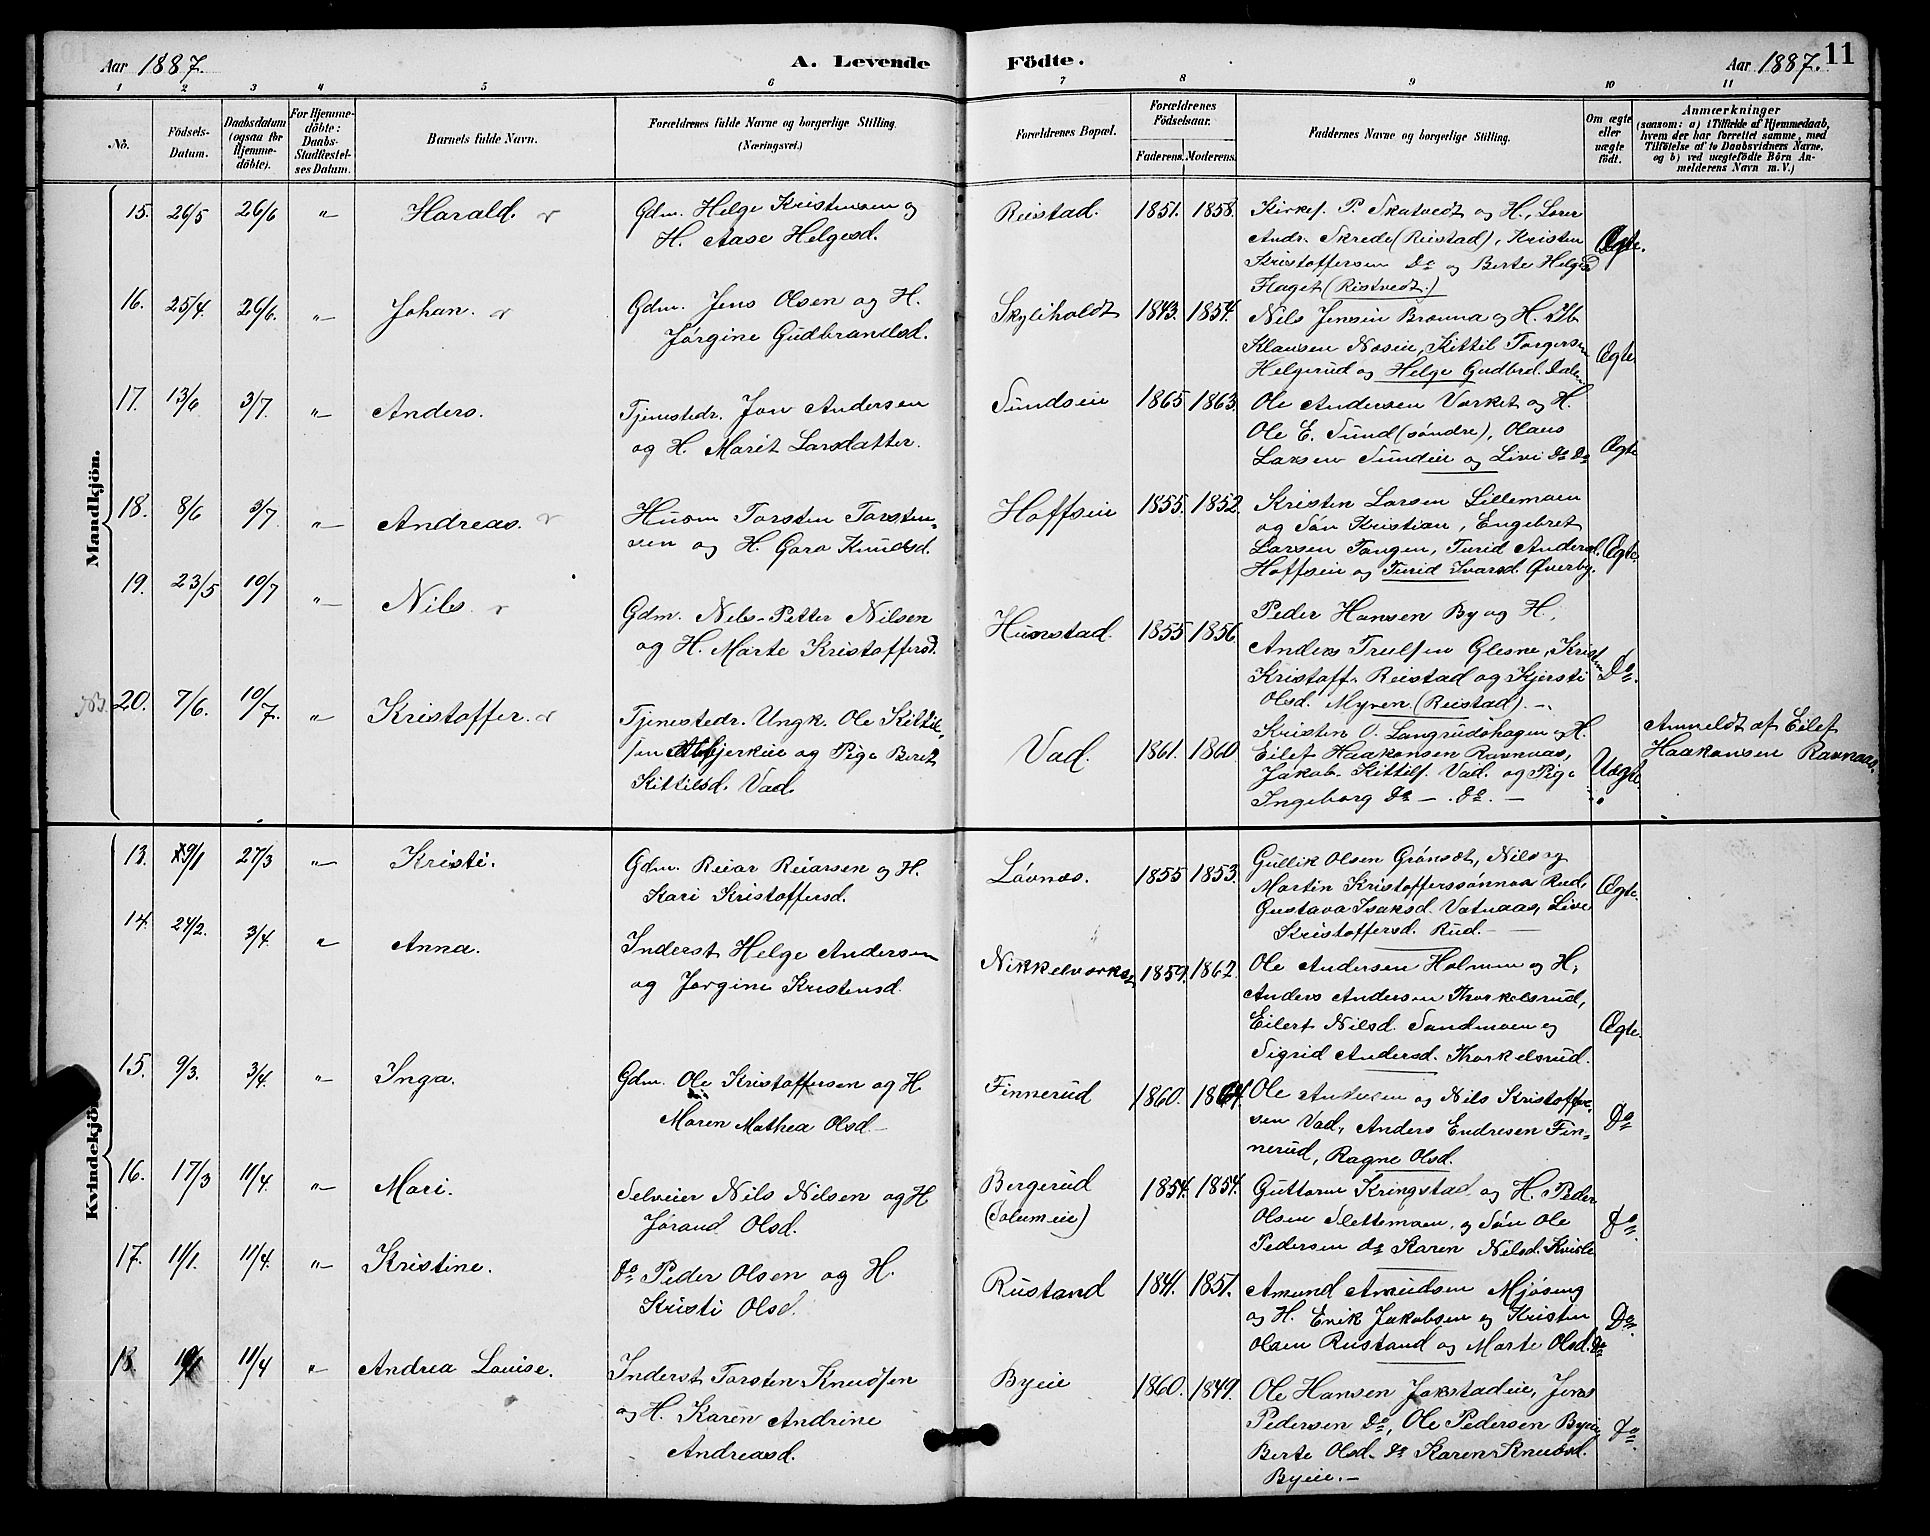 Aar 1887.
A. Levende
Födte.
Aar 1887. 11
1 2 3 4 5 6 7 8 9 10 11
No.
Födsels-
Datum.
Daabsdatum
(ogsaa for
Hjemme-
döbte).
For Hjemme-
döbte:
Daabs-
Stadfæstel-
ses Datum.
Barnets fulde Navn.
Forældrenes fulde Navne og borgerlige Stilling
(Næringsvei.)
Forældrenes Bopæl.
Forældrenes
Födselsaar.
Faderens. Moderens.
Faddernes Navne og borgerlige Stilling.
Om ægte
eller
uægte
födt.
Anmærkninger
(saasom: a) i Tilfælde af Hjemmedaab,
hvem der har forrettet samme, med
Tilföielse af to Daabsvidners Navne,
og b) ved uægtefödte Börn An-
melderens Navn m.V.)
Mandkjön.
15. 26/5 26/6 "
Harald.
Gdm. Helge Kristensen og
H. Aase Helgesd.
Reistad. 1851. 1858.
Kirkes. P. Skatvedt og H., Lærer
Andr. Skrede (Reistad), Kristen
Kristoffersen Do og Berte Helgesd
Haget (Ristvedt.)
Ægte.
16. 25/4. 26/6. "
Johan.
Gdm. Jens Olsen og H.
Jörgine Gudbrandsd.
Skyliholdt 1843. 1854.
Nils Jensen Brænna og H.
Klausen Nöseie, Kittil Torgersen
Helgerud og Helge Gudbrd. Dalen
Ægte
17. 13/6 3/7. "
Anders.
Tjenestedr. Jon Andersen
og H. Marit Larsdatter.
Sundseie 1865 1863.
Ole Andersen Værket og H.
Ole E. Sund (söndre), Olaus
Larsen Sundeie og Live Do Do
Ægte
18. 8/6 3/7. "
Andreas.
Husm Torsten Torsten-
sen og H. Goro Knudsd.
Hoffseie 1855. 1852.
Kristen Larsen Lillemoen
og Sön Kristian, Engebret
Larsen Tangen, Turid Andersd.
Hoffseie og Turid Ivarsd. Øverby.
Ægte.
19. 23/5 10/7 "
Nils
Gdm. Nils-Petter Nilsen
og H. Marte Kristoffersd.
Hunstad. 1855 1856.
Peder Hansen By og H.
Anders Trulsen Glesne, Kristen
Kristoff. Reistad og Kjersti
Olsd. Myren (Reistad).
Do.
NB. 20. 7/6. 10/7. "
Kristoffer.
Tjenestedr. Ungk. Ole Kittil-
sen og Pige Beret
Kittilsd. Vad.
Vad. 1861. 1860.
Kristen O. Langrudshagen og H.
Eilef Haakonsen Ravnaas,
Jakob Kittils. Vad. og Pige
Ingeborg Do — Do. —
Uægte.
Anmeldt af Eilef
Haakonsen Ravnaas.
Kvindekjön.
13. 29/1 27/3 "
Kristi.
Gdm. Reiar Reiarsen og H.
Kari Kristoffersd.
Lövnes. 1855 1853.
Gullik Olsen Grönset, Nils og
Martin Kristofferssönnaa Rud,
Gustava Isaksd. Vatnaas, Live
Kristoffersd. Rud.
Ægte.
14. 24/2. 3/4. "
Anna.
Inderst Helge Andersen
og Jörgine Kristensd.
Nikkelværket 1859. 1862.
Ole Andersen Holmen og H.
Anders Andersen Thorkelsrud,
Eilert Nilsd. Sandmoen og
Sigrid Andersd. Thorkelsrud.
Ægte.
15. 9/3. 3/4. "
Inga.
Gdm. Ole Kristoffersen og H
Maren Mathea Olsd
Finnerud 1860. 1864.
Ole Andersen og Nils Kristoffer-
sen Vad, Anders Endresen Fin-
nerud, Ragne Olsd.
Do
16. 17/3 11/4. "
Mari.
Selveier Nils Nilsen og H
Jörand Olsd.
Bergerud
(Solumeie)
1854. 1854.
Guttorm Kringstad og H. Peder
Olsen Slettemoen, og Sön Ole
Pedersen Do Karen Nilsd. Kvisle
Do.
17. 11/1. 11/4. "
Kristine.
Do Peder Olsen og H.
Kristi Olsd.
Rustand 1841. 1851.
Amund Amundsen Mjösung
og H. Erik Jakobsen og Kristen
Olsen Rustand og Marte Olsd. Do
Do.
18. 11/4 "
Andrea Louise.
Inderst Torsten Knudsen
og H. Karen Andrine
Andreasd.
Byeie 1860. 1849.
Ole Hansen Jokstadeie, Jens
Pedersen Do, Ole Pedersen Byeie
Berte Olsd. Do Karen Knudsd.
Byeie.
Do.